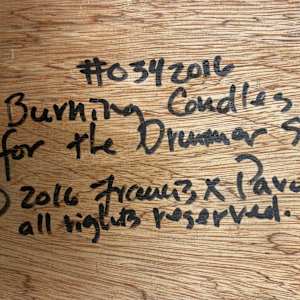 #0342016
Burning Candles
for the Drummer
2016 Francis X Pav
all rights reserved.